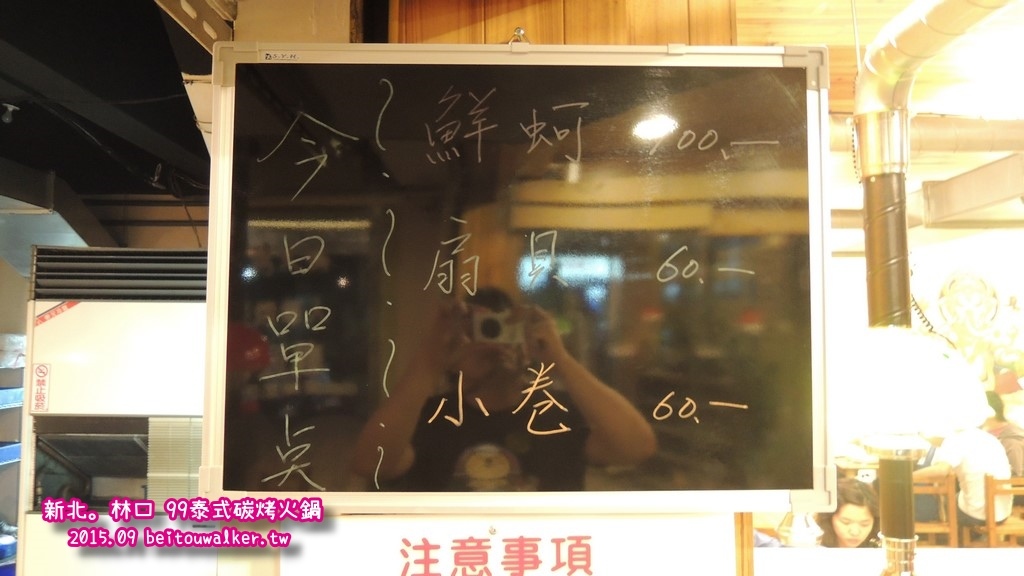 S.Y.H.
今日單点
鮮蚵 100.—
扇貝 60.—
小卷 60.—
禁止吸菸
新北。林口 99泰式碳烤火鍋
2015.09 beitouwalker.tw
注意事項